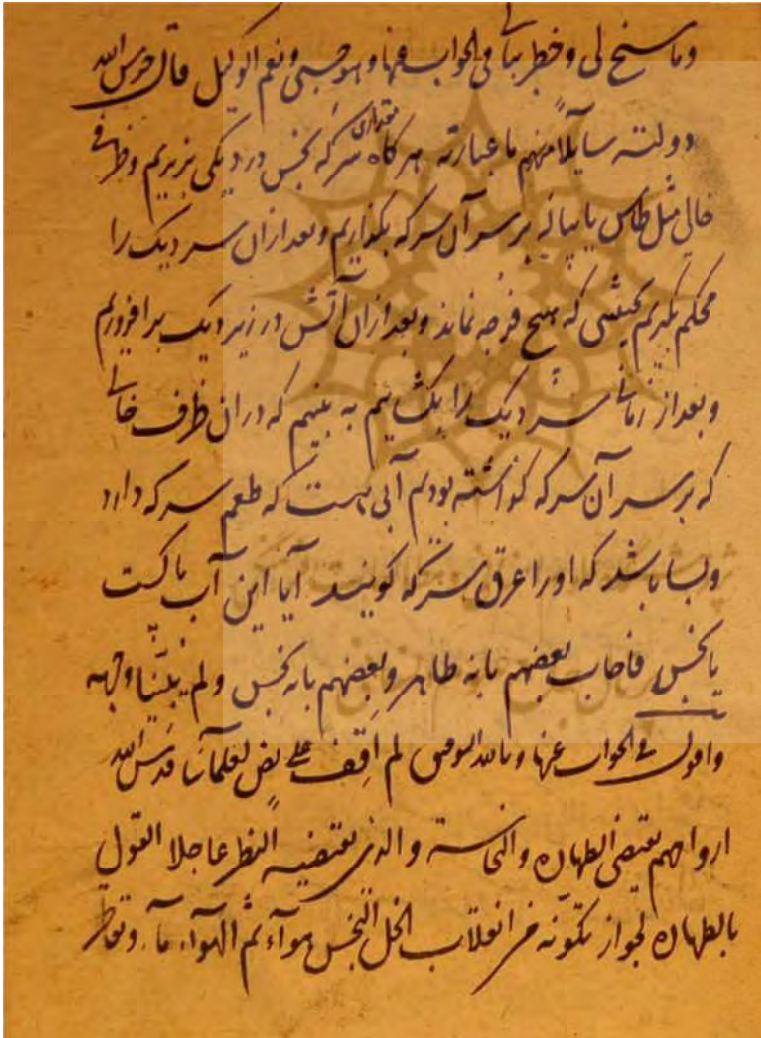 وما سنح لى وخطر ببالى فى الجواب عنها وهو حسبى ونعم الوكيل قال حرس الله
دولته سايلاً منهم ما عبارته هر كاه مقدارى سركه نجس در ديكى بريزيم وظرفى
خالى مثل طاس يا پياله بر سر آن سركه بكذاريم وبعد ازان سر ديك را
محكم بكيريم بحيثى كه هيچ فرجه نماند وبعد ازان آتش در زير ديك برافروزيم
وبعد از زمانى سر ديك را بكشائيم به بينيم كه دران ظرف خالى
كه بر سر آن سركه كذاشته بوديم آبى هست كه طعم سركه دارد
وبسا باشد كه اورا عرق سركه كويند آيا اين آب پاكست
يا نجس فاجاب بعضهم بانه طاهر وبعضهم بانه نجس ولم يبيّنا وجهه
واقول فى الجواب عنها وبالله التوفيق لم اقف على نص لعلمآئنا قدس الله
ارواحهم يقتضى الطهارة والنجاسة والذى يقتضيه النظر عاجلا القول
بالطهارة لجواز تكوّنه من انقلاب الخل النجس هوآء ثم الهوآء مآء وتقاطر